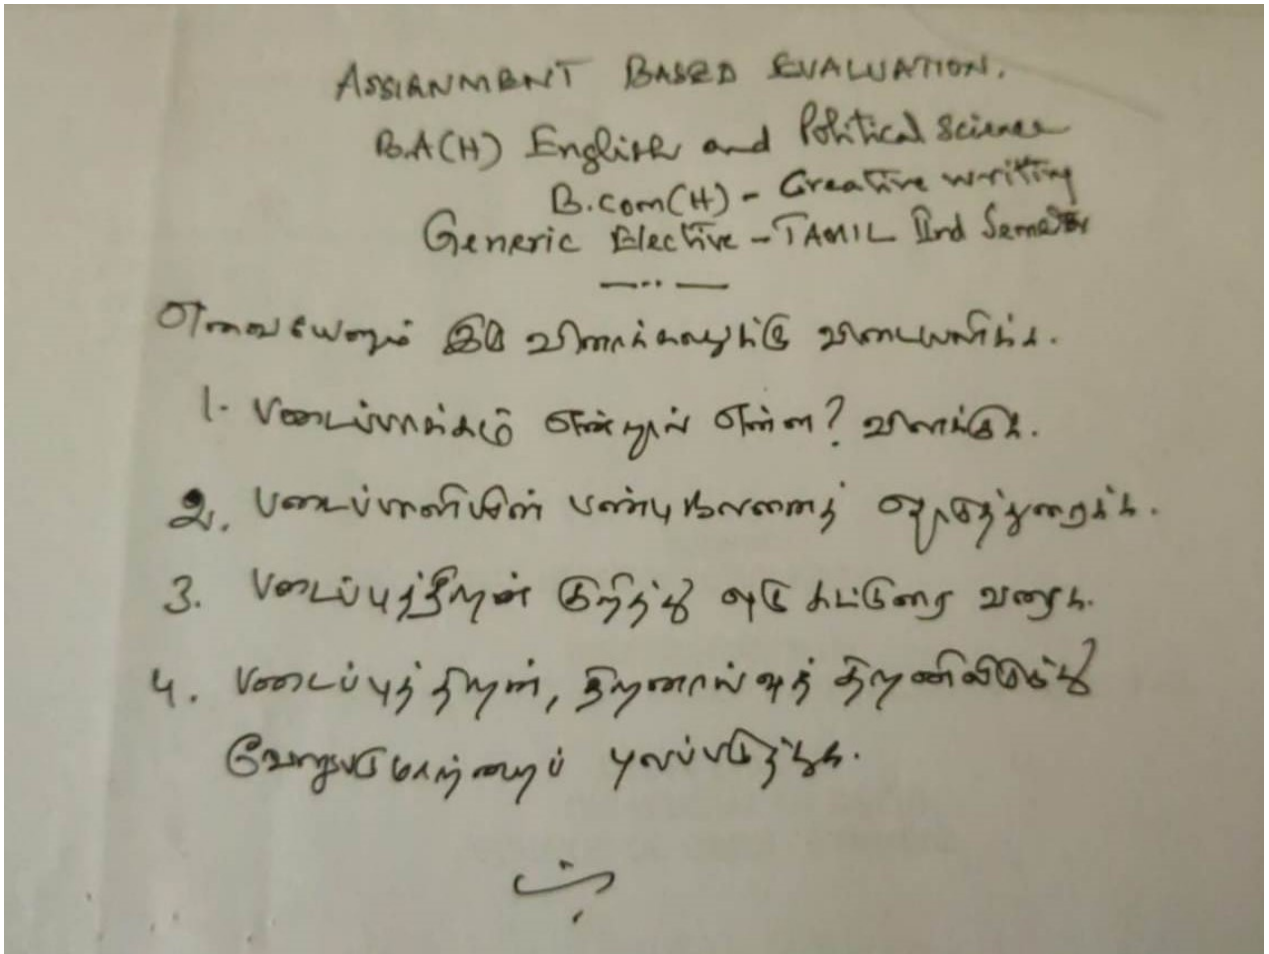 ASSIGNMENT BASED EVALUATION.
B.A(H) English and Political Science
B.com(H) - Creative writing
Generic Elective - TAMIL IInd Semester
எவையேனும் இரு வினாக்களுக்கு விடையளிக்க.
1. படைப்பாக்கம் என்றால் என்ன? விளக்குக.
2. படைப்பாளியின் பண்பு நலனைத் எடுத்துரைக்க.
3. படைப்புத்திறன் குறித்து ஒரு கட்டுரை வரைக.
4. படைப்புத் திறன், திறனாய்வுத் திறனிலிருந்து
வேறுபடுமாற்றைப் புலப்படுத்துக.